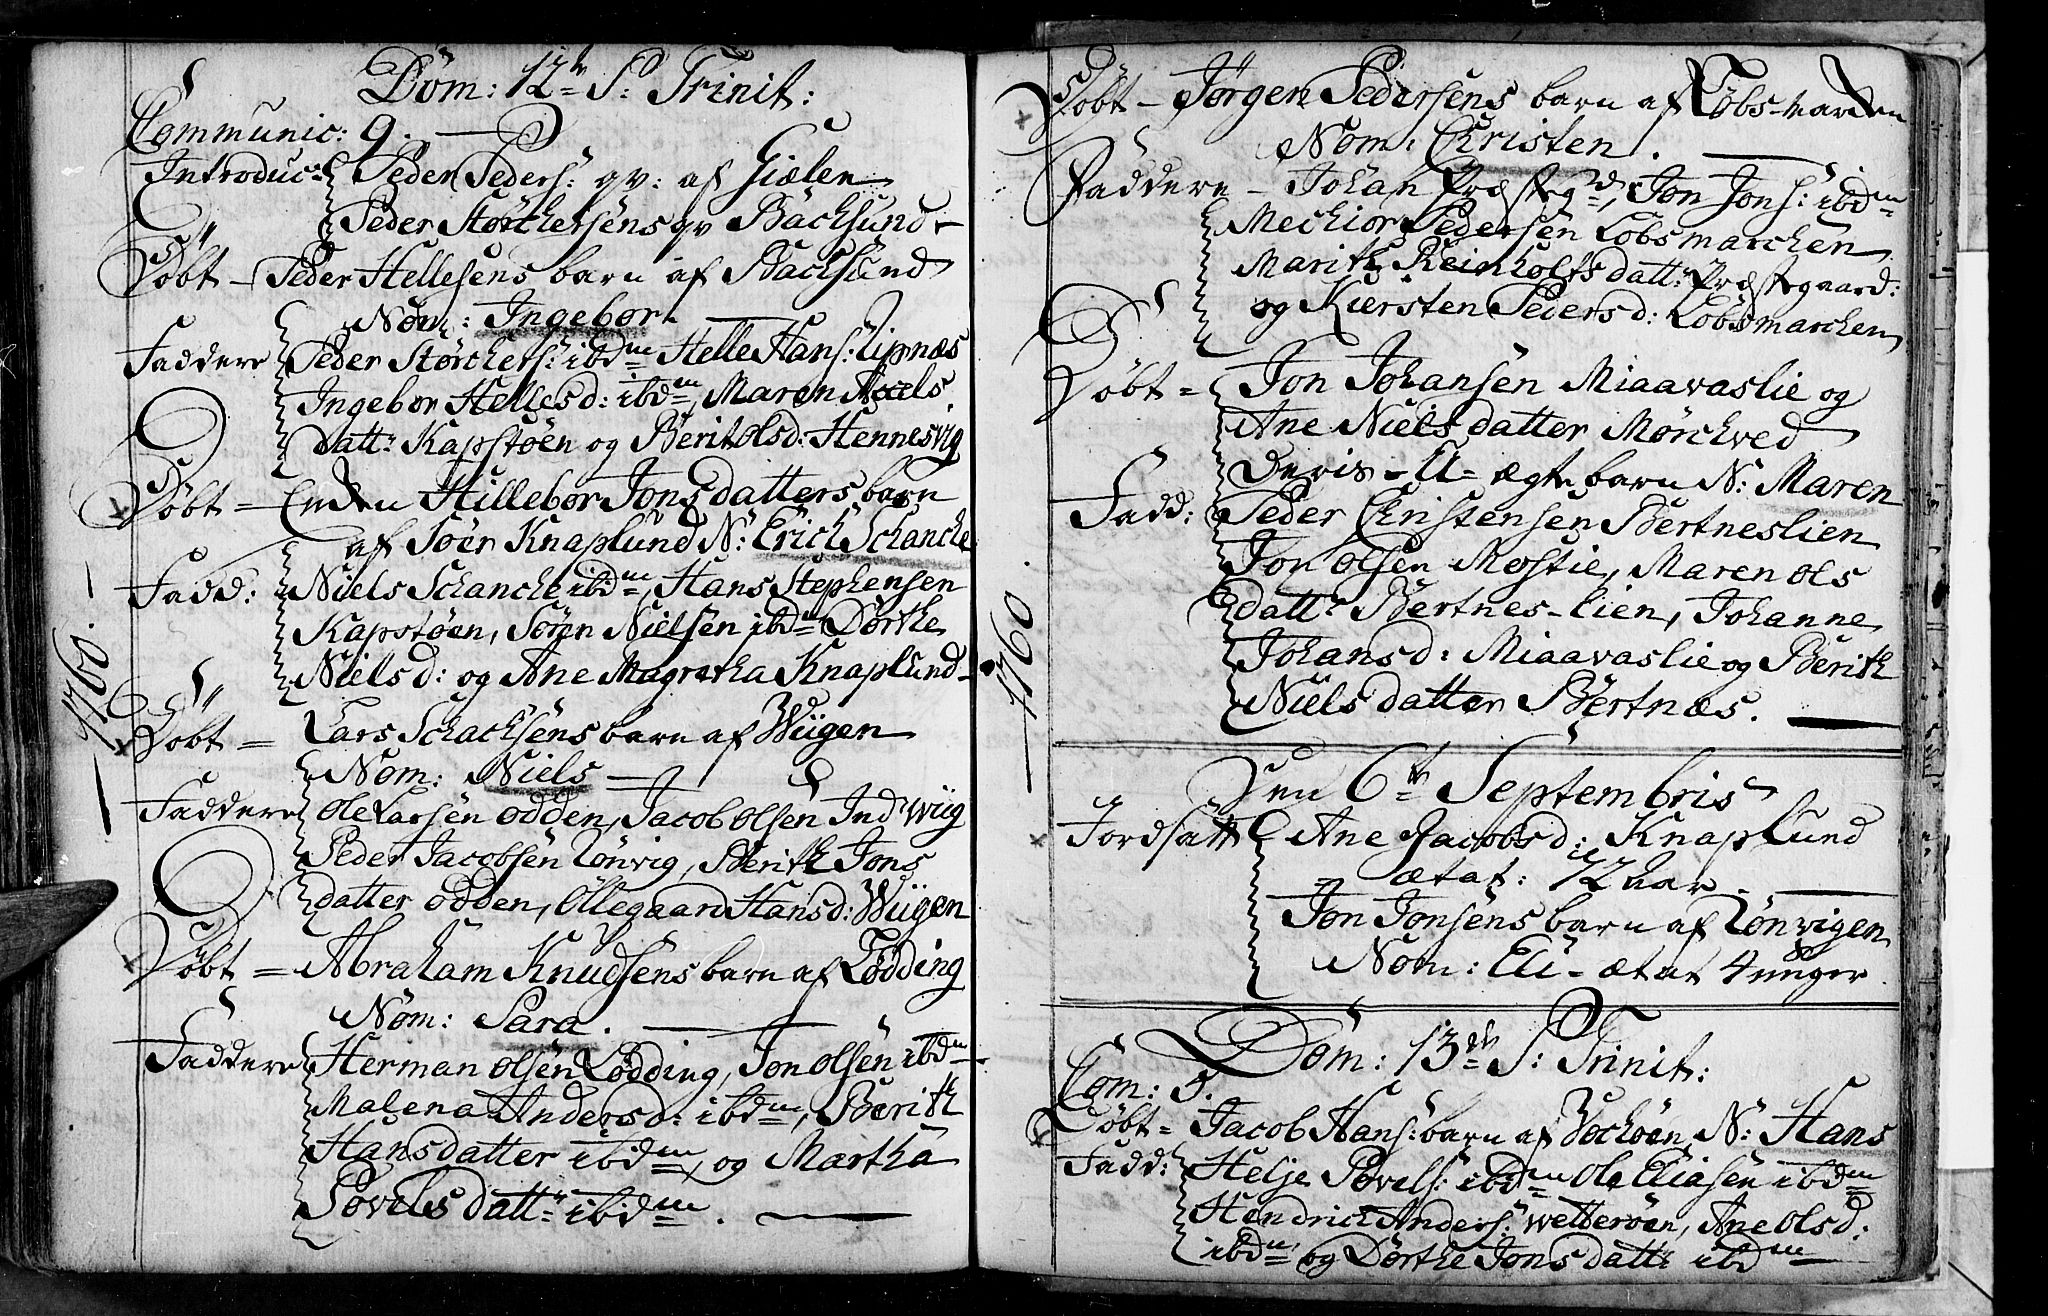 Dom: 12te S: Trinit:
Communic: 9.
Introduc: Peder Peders: qv: af Giælen
Peder Störchersens qv Backsund
Döbt – Peder Hellesens barn af Backsund
Nom: Ingebor
Faddere Peder Störchers: ibdm Helle Hans: Lipnæs
Ingebor Hellesd: ibdm, Maren Axels
datt: Kapstöen og Berit Olsd: Hennesvig
Döbt = Enken Hillebor Jonsdatters barn
af Söer Knaplund N: Erich Schancke
Fadd: Niels Schancke ibdm, Hans Stephensen
Kapstöen, Sören Nielsen ibdm Dorthe
Nielsd: og Ane Magretha Knaplund
1760.
Döbt = Lars Schachsens barn af Wiigen
Nom: Niels
Faddere Ole Larsen Odden, Jacob Olsen Indwiig
Peder Jacobsen Lönvig, Berith Jons
datter Odden, Ollegaard Hansd: Wiigen
Döbt = Abraham Knudsens barn af Lödding
Nom: Sara.
Faddere Herman Olsen Lödding, Jon Olsen ibdm
Malena Andersd: ibdm, Berith
Hansdatter ibdm, og Martha
Povelsdatt: ibdm.
Döbt – Jörgen Pedersens barn af Löbsmarcken
Nom: Christen.
Faddere – Johan Præstegd, Jon Jons: ibdm
Mechior Pedersen Löbsmarchen
Marith Reinholtsdatt: Præstegaard:
og Kiersten Pedersd: Löbsmarchen
Döbt = Jon Johansen Miaavaslie og
Ane Nielsdatter Mörchved
Deris U-ægte barn N: Maren
Fadd: Peder Christensen Bertneslien
Jon Olsen Mostie, Maren Ols
datt: Bertnes-lien, Johanne
Johansd: Miaavaslie og Berith
Nielsdatter Bertnæs.
1760.
Den 6te Septembris
Jordsatt Ane Jacobsd: Knaplund
ætat: 72 aar
Jon Jonsens barn af Lönvigen
Nom: Eli – ætat 4 uger
Dom: 13de S: Trinit:
Com: 5.
Döbt = Jacob Hans: barn af N: Hans
Fadd: Helje Povels: ibdm Ole Eliasen ibdm
Hendrich Anders: Wetteröen, Ane Olsd:
ibdm, og Dorthe Jonsdatt: ibdm